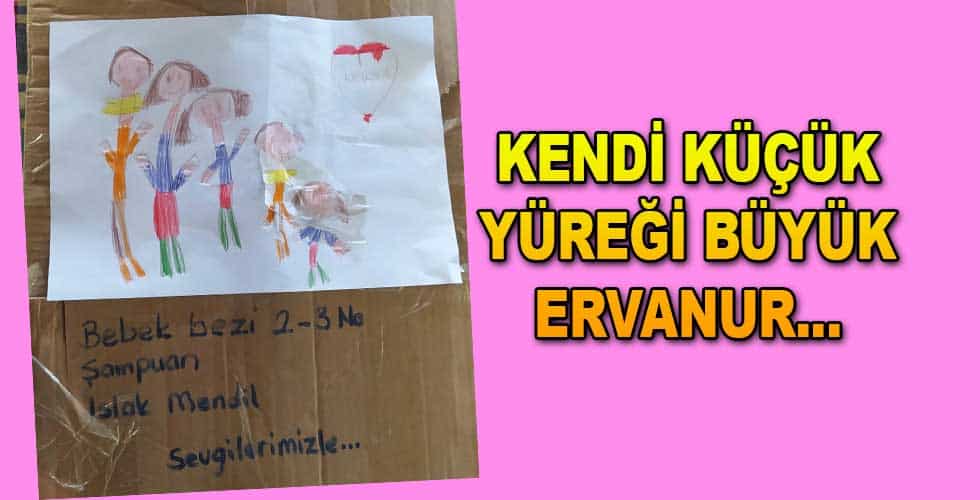 Bebek bezi 2-3 No
Şampuan
Islak Mendil
Sevgilerimizle...
KENDİ KÜÇÜK
YÜREĞİ BÜYÜK
ERVANUR...